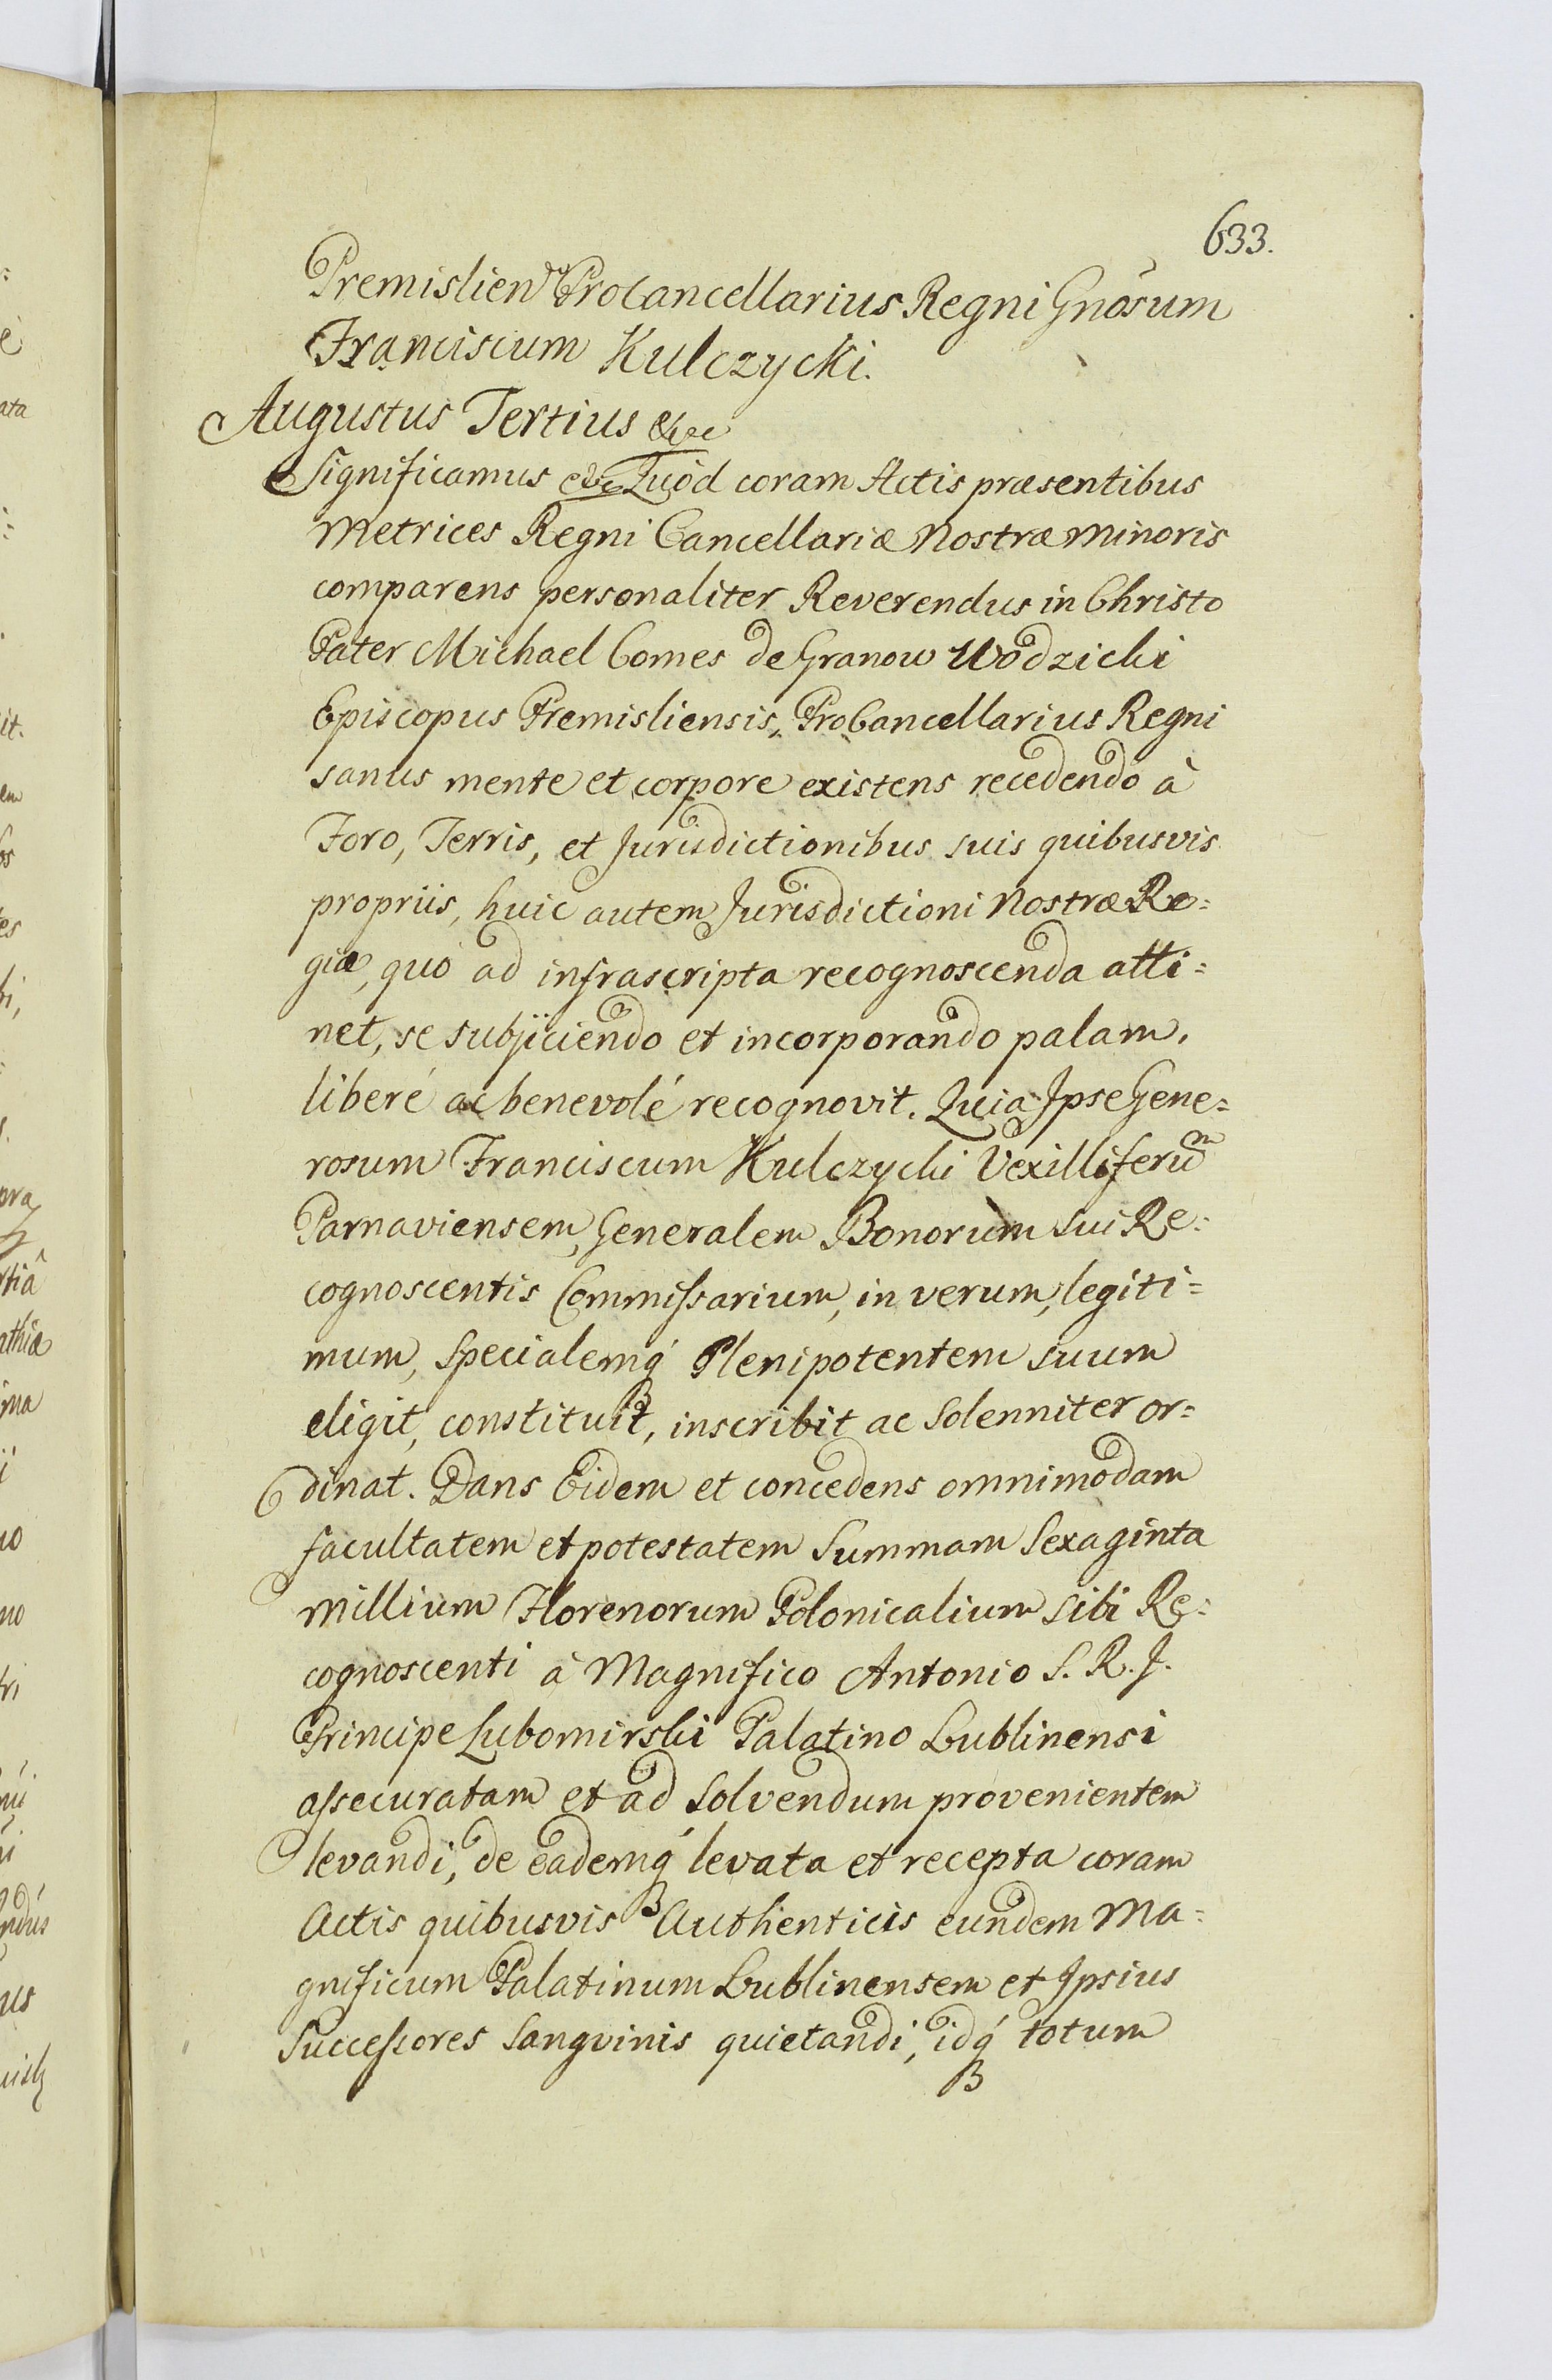 633.
Premislien Procancellarius Regni Gnosum
Franciscum Kulczycki.
Augustus Tertius &c
Significamus &c Quòd coram Actis præsentibus
Metrices Regni Cancellariæ Nostræ Minoris
comparens personaliter Reverendus in Christo
Pater Michael Comes de Granow Wodzicki
Episcopus Premisliensis, ProCancellarius Regni
sanus mente et corpore existens recedendo à
Foro, Terris, et Jurisdictionibus suis quibusvis
propriis, huic autem Jurisdictioni Nostræ Re=
giæ, quò ad infrascripta recognoscenda atti=
net, se subjiciendo et incorporando palam,
liberé ac benevolé recognovit. Quia Ipse Gene=
rosum Franciscum Kulczycki Vexilliferum
Parnaviensem, Generalem Bonorum sui Re=
cognoscentis Commissarium, in verum, legiti=
mum, Specialemq́ Plenipotentem suum
eligit, constituit, inscribit ac Solenniter or=
dinat. Dans Eidem et concedens omnimodam
facultatem et potestatem Summam Sexaginta
Millium Florenorum Polonicalium sibi Re=
cognoscenti à Magnifico Antonio S. R. J.
Principe Lubomirski Palatino Lublinensi
assecuratam et ad solvendum provenientem
levandi, de eademq́ levata et recepta coram
Actis quibusvis Authenticis eundem Ma=
gnificum Palatinum Lublinensem et Ipsius
Successores Sangvinis quietandi, idq́ totum